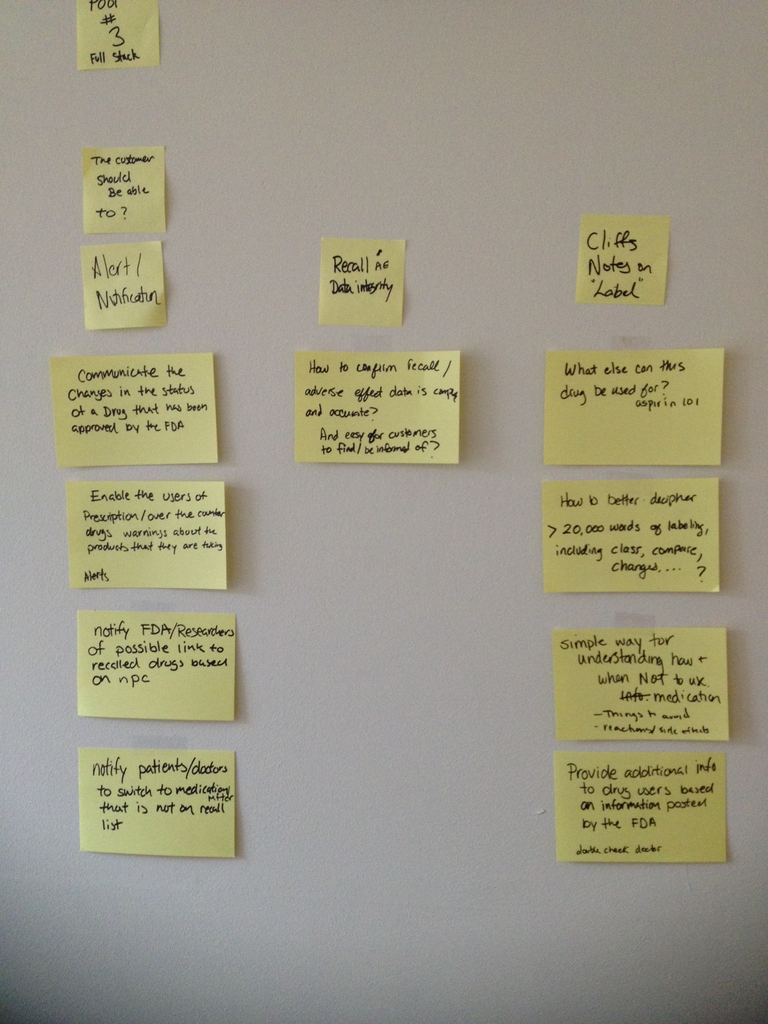 POOL
#
3
Full Stack
The customer
should
Be able
to?
Alert/
Notification
Communicate the
changes in the status
of a Drug that has been
approved by the FDA
Enable the users of
Prescription/over the counter
drugs warnings about the
products that they are taking
Alerts
notify FDA/Researchers
of possible link to
recalled drugs based
on npc
notify patients/doctors
to switch to medication/
mfter
that is not on recall
list
Recall AE
Data integrity
How to confirm recall/
adverse effect data is
and accurate?
And easy for customers
to find/be informed of?
Cliffs
Notes on
"Label"
What else can this
drug be used for?
aspirin 101
How to better decipher
> 20,000 words of labeling,
including class, compare,
changes,... ?
simple way for
understanding how +
when NOT to use
info. medication
- Things to avoid
- reactions/side effects
Provide additional info
to drug users based
on information posted
by the FDA
double check doctor